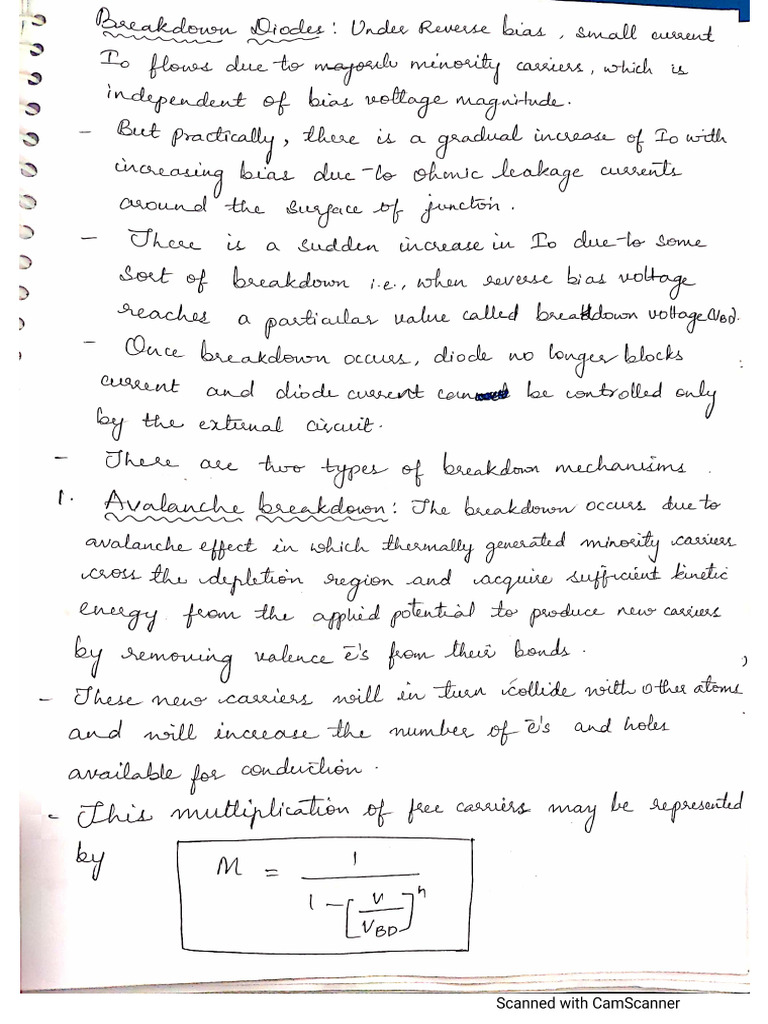 Breakdown Diodes: Under Reverse bias, small current
Io flows due to majorit minority carriers, which is
independent of bias voltage magnitude.
- But practically, there is a gradual increase of Io with
increasing bias due-to ohmic leakage currents
around the surface of juncton.
- There is a sudden increase in Io due-to some
sort of breakdown i.e., when reverse bias voltage
reaches a particular value called breakdown voltage(VBD).
- Once breakdown occurs, diode no longer blocks
current and diode current can be controlled only
by the external circuit.
- There are two types of breakdown mechanisms.
1. Avalanche breakdown: The breakdown occurs due to
avalanche effect in which thermally generated minority carriers
cross the depletion region and acquire sufficient kinetic
energy from the applied potential to produce new carriers
by removing valence ē's from their bonds.
- These new carriers will in turn collide with other atoms
and will increase the number of ē's and holes
available for conduction.
- This multiplication of free carriers may be represented
by M = 1 / 1 - [V/VBD]^n
Scanned with CamScanner